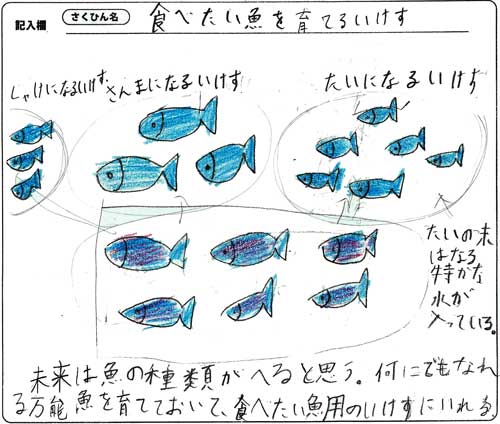 記入欄 さくひん名 食べたい魚を育てるいけす
しゃけになるいけす さんまになるいけす たいになるいけす
たいの味
になる
特がな
水が
入っている。
未来は魚の種類がへると思う。何にでもなれ
る万能魚を育てておいて、食べたい魚用のいけすにいれる。